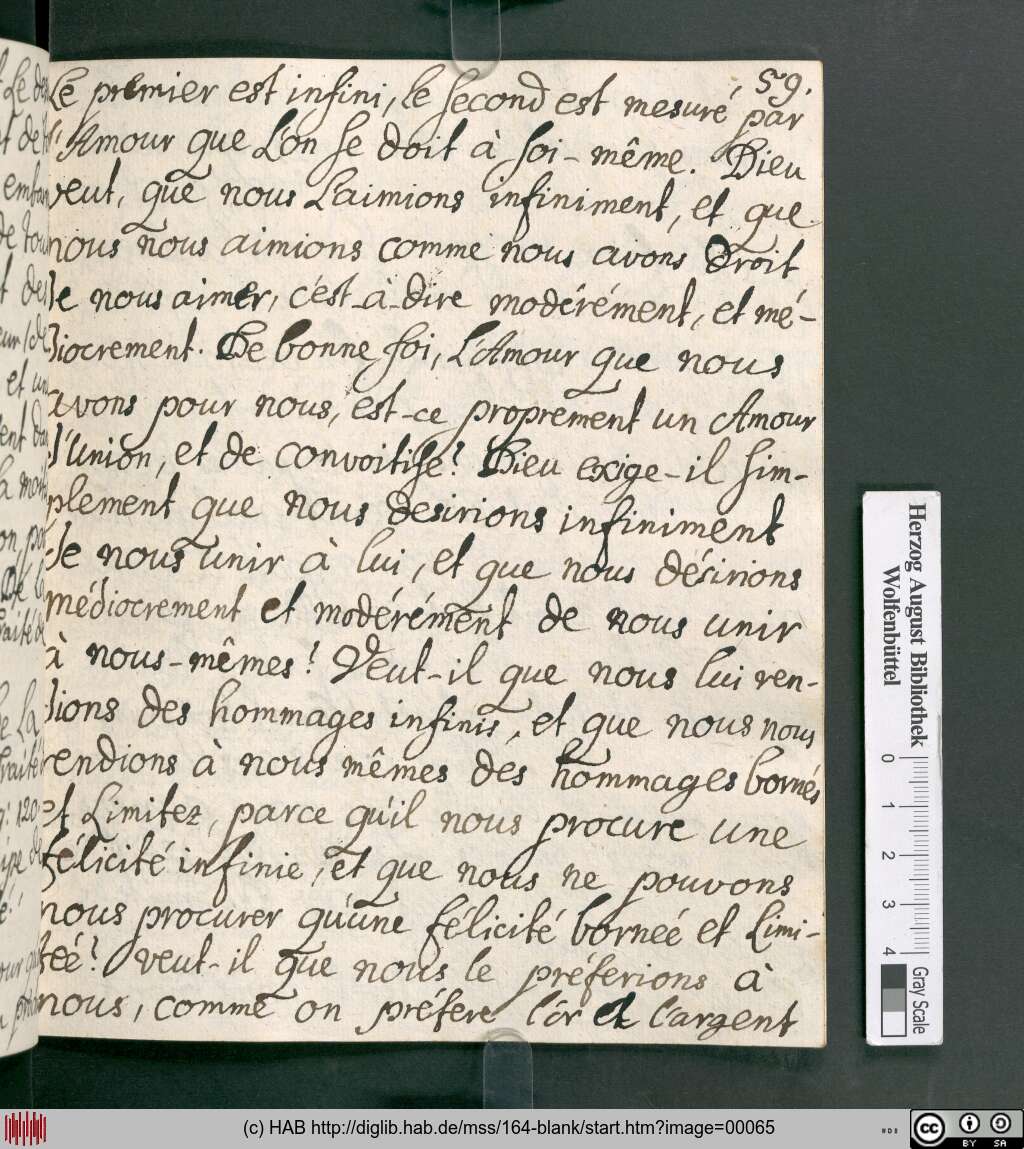 59.
Le premier est infini, le second est mesuré par
l'Amour que L'on se doit à soi-même. Dieu
veut, que nous L'aimions infiniment, et que
nous nous aimions comme nous avons Droit
de nous aimer, c'est-à-dire modérément, et mé-
diocrement. De bonne foi, L'Amour que nous
avons pour nous, est-ce proprement un Amour
d'Union, et de convoitise? Dieu exige-il sim-
plement que nous desirions infiniment
de nous unir à lui, et que nous désirions
médiocrement et modérément de nous unir
à nous-mêmes! Veut-il que nous lui ren-
dions des hommages infinis, et que nous nous
rendions à nous mêmes des hommages bornés
et Limitez, parce qu'il nous procure une
félicité infinie, et que nous ne pouvons
nous procurer qu'une félicité bornée et Limi-
tée! veut-il que nous le préferions à
nous, comme on préfere l'or et l'argent
Herzog August Bibliothek
Wolfenbüttel
0 1 2 3 4
Gray Scale
(c) HAB http://diglib.hab.de/mss/164-blank/start.htm?image=00065
cc BY SA